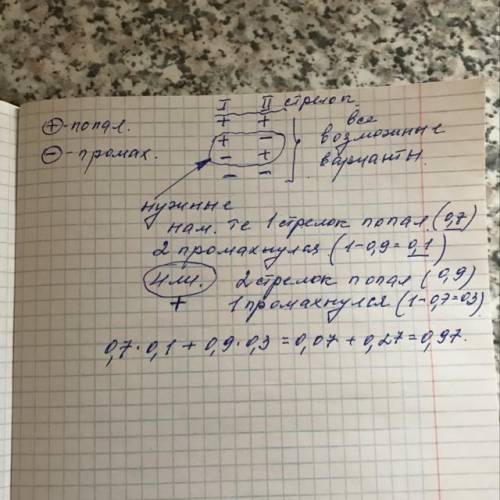 I II стрелок
⊕-попал. + + все
+ − возможные
⊖-промах. − + варианты.
− −
нужные
нам. те 1 стрелок попал (0,7)
2 промахнулся (1-0,9=0,1)
или. 2 стрелок попал (0,9)
+ 1 промахнулся (1-0,7=0,3)
0,7·0,1+0,9·0,3=0,07+0,27=0,97.